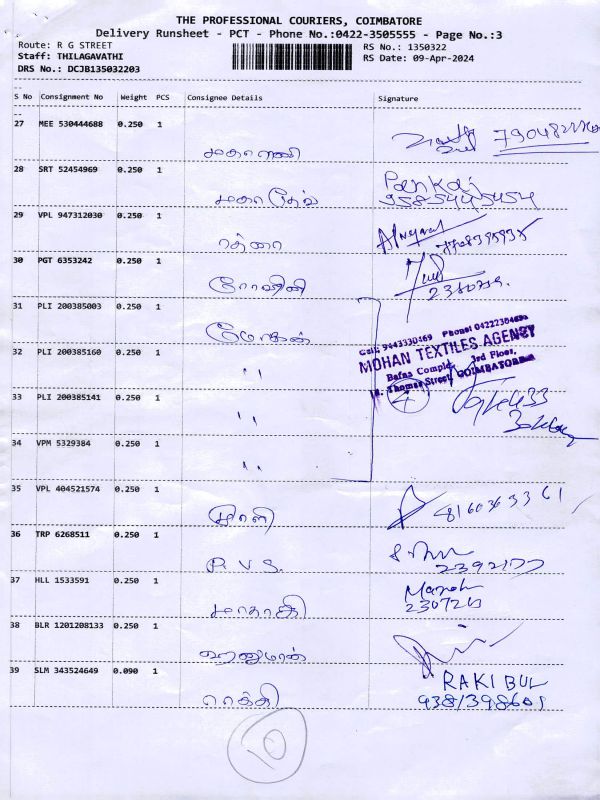 THE PROFESSIONAL COURIERS, COIMBATORE
Delivery Runsheet - PCT - Phone No.:0422-3505555 - Page No.:3
Route: R G STREET
Staff: THILAGAVATHI
DRS No.: DCJB135032203
RS No.: 1350322
RS Date: 09-Apr-2024
S No Consignment No Weight PCS Consignee Details Signature
27 MEE 530444688 0.250 1
மகாராணி
28 SRT 52454969 0.250 1 Pankaj
மகாதேவ்
29 VPL 947312030 0.250 1
ரத்னா
30 PGT 6353242 0.250 1
ரோஷினி
31 PLI 200385003 0.250 1
மோகன்
MOHAN TEXTILES AGENCY
3rd Floor,
Thomas Street, COIMBATORE
32 PLI 200385160 0.250 1
"
33 PLI 200385141 0.250 1 4
"
34 VPM 5329384 0.250 1
"
35 VPL 404521574 0.250 1
36 TRP 6268511 0.250 1
R.V.S.
37 HLL 1533591 0.250 1 Manoj
38 BLR 1201208133 0.250 1
ஹனுமான்
39 SLM 343524649 0.090 1 RAKIBUL
ராக்கி
10